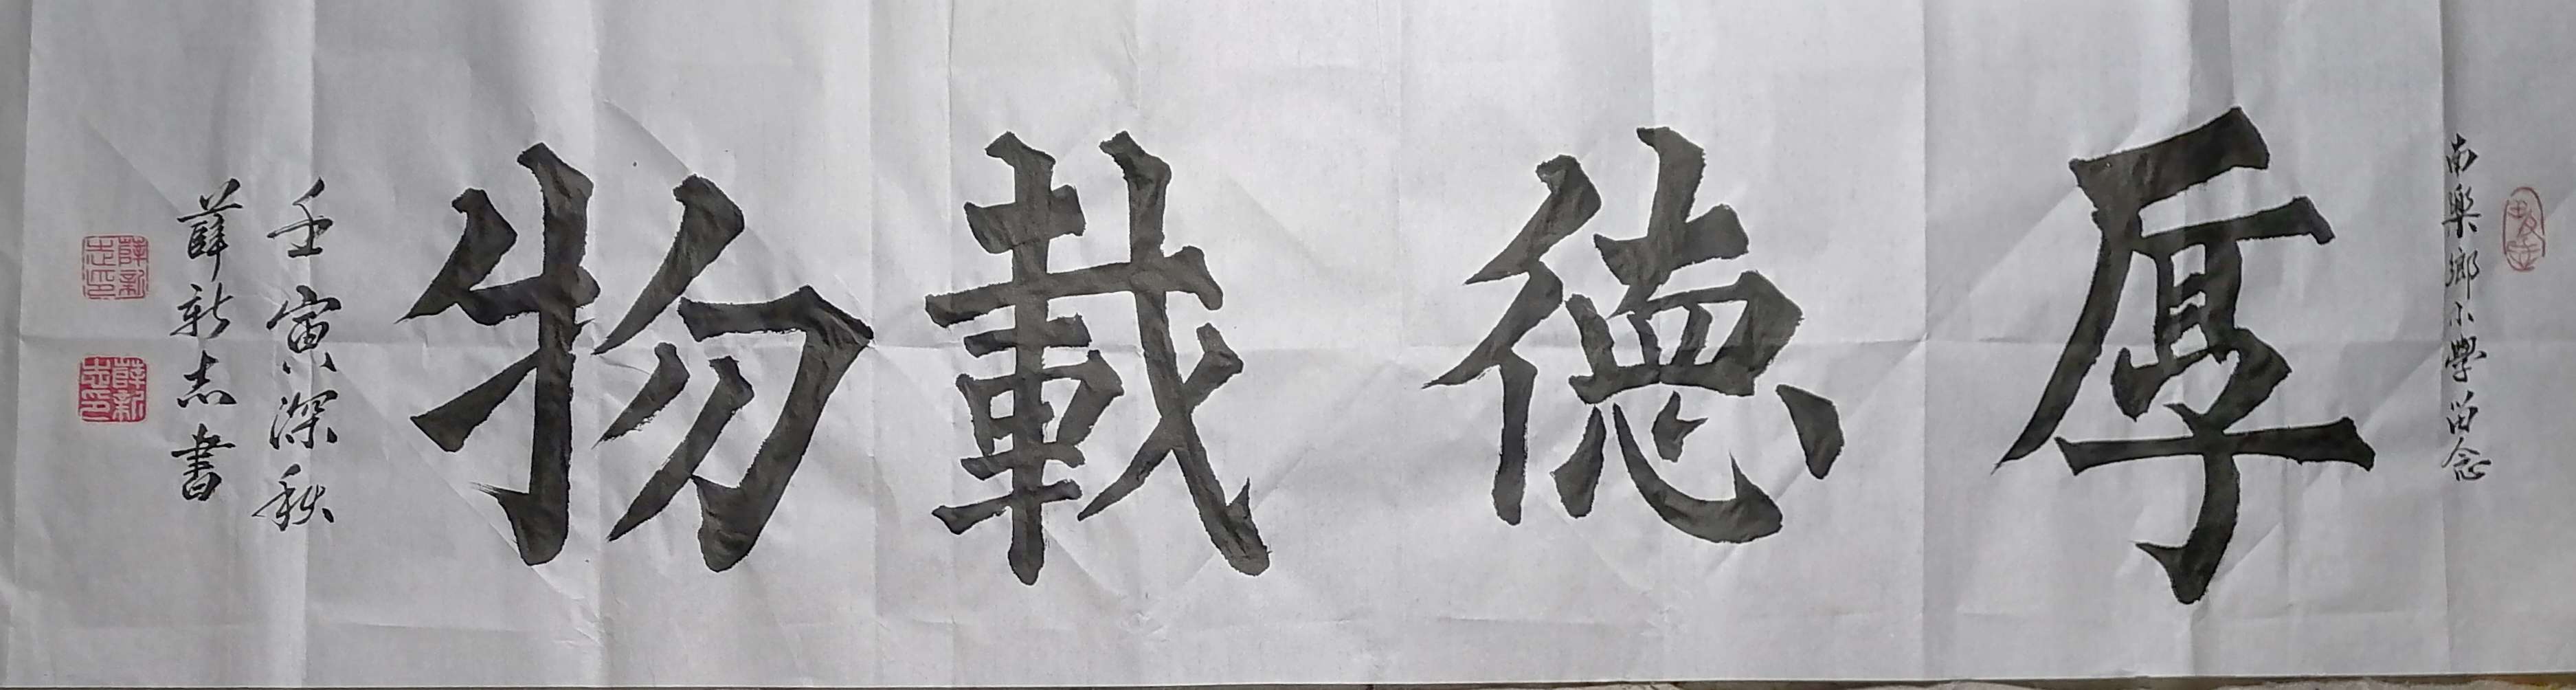 南樂鄉小學留念
厚德載物
壬寅深秋
薛新志書
薛新志印
薛新志印